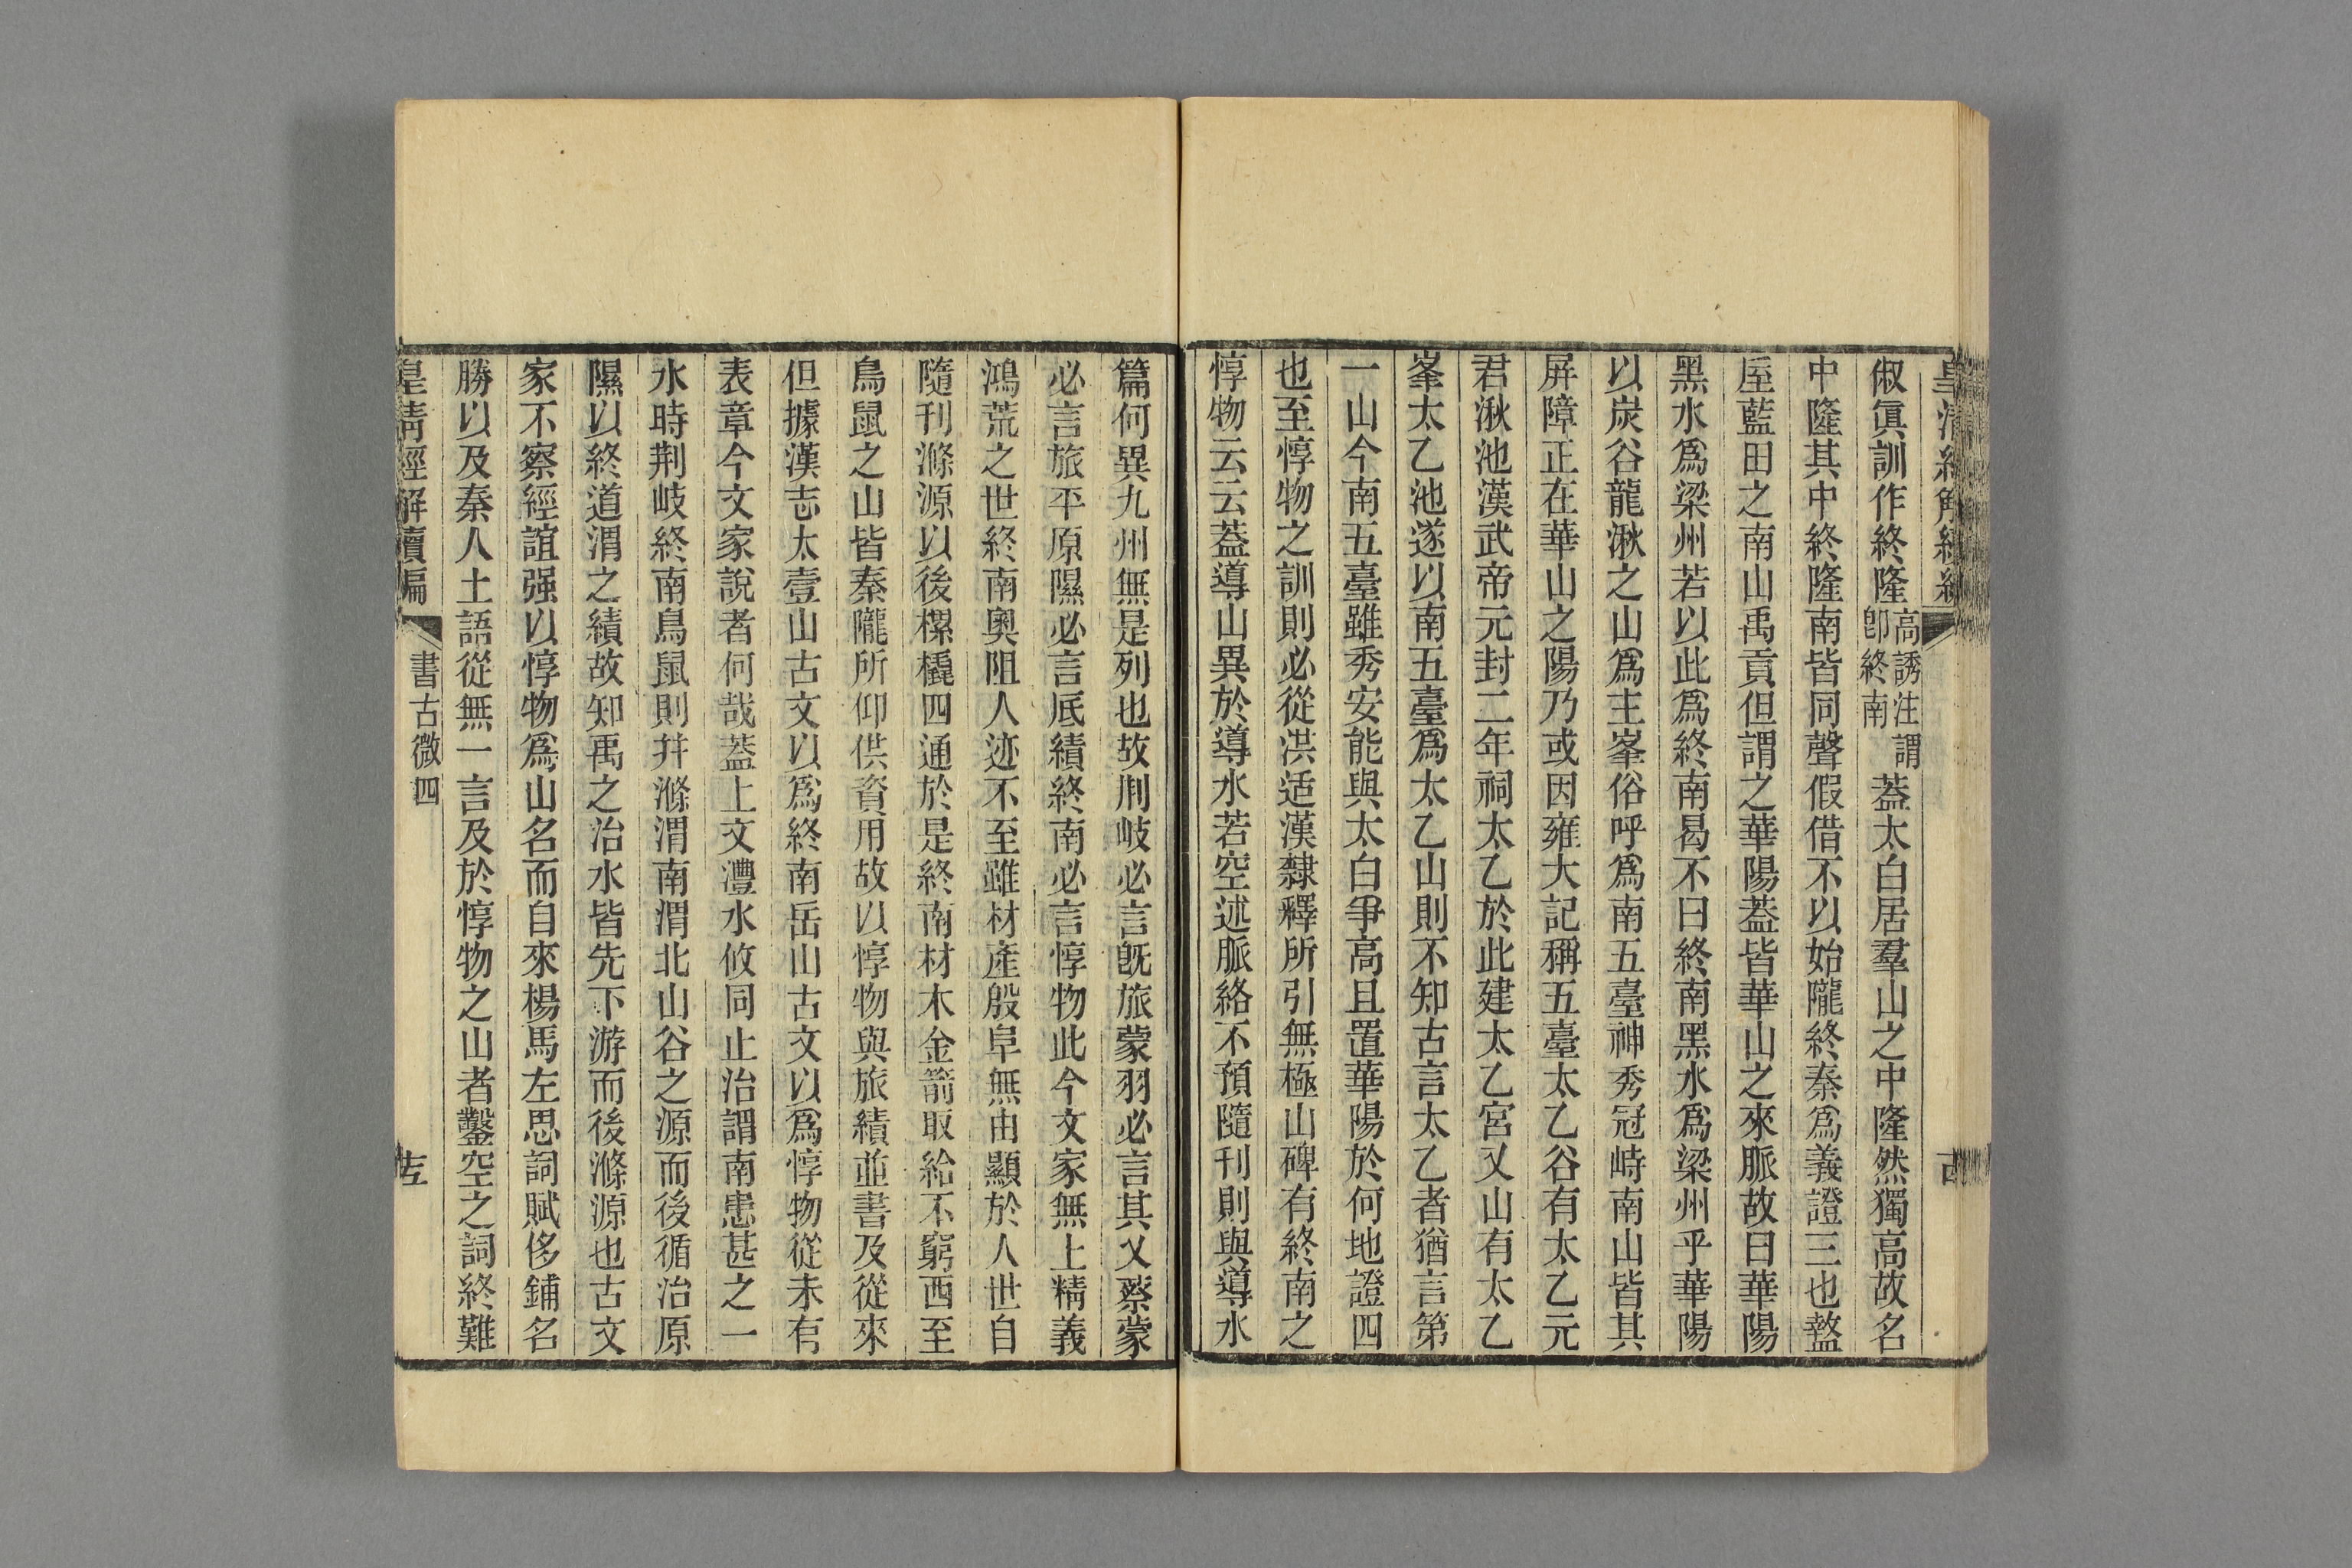 俶眞訓作終隆高誘注謂卽終南蓋太白居羣山之中隆然獨高故名
中隆其中終隆南皆同聲假借不以始隴終秦爲義證三也盩
厔藍田之南山禹貢但謂之華陽蓋皆華山之來脈故曰華陽
黑水爲梁州若以此爲終南曷不曰終南黑水爲梁州乎華陽
以炭谷龍湫之山爲主峯俗呼爲南五臺神秀冠峙南山皆其
屏障正在華山之陽乃或因雍大記稱五臺太乙谷有太乙元
君湫池漢武帝元封二年祠太乙於此建太乙宮又山有太乙
峯太乙池遂以南五臺爲太乙山則不知古言太乙者猶言第
一山今南五臺雖秀安能與太白爭高且置華陽於何地證四
也至惇物之訓則必從洪适漢隸釋所引無極山碑有終南之
惇物云云蓋導山異於導水若空述脈絡不預隨刊則與導水
篇何異九州無是列也故荆岐必言旣旅蒙羽必言其乂蔡蒙
必言旅平原隰必言厎績終南必言惇物此今文家無上精義
鴻荒之世終南奧阻人迹不至雖材產殷阜無由顯於人世自
隨刊滌源以後樏橇四通於是終南材木金箭取給不窮西至
鳥鼠之山皆秦隴所仰供資用故以惇物與旅績並書及從來
但據漢志太壹山古文以爲終南岳山古文以爲惇物從未有
表章今文家說者何哉蓋上文灃水攸同止治謂南患甚之一
水時荆岐終南鳥鼠則幷滌渭南渭北山谷之源而後循治原
隰以終道渭之績故知禹之治水皆先下游而後滌源也古文
家不察經誼强以惇物爲山名而自來楊馬左思詞賦侈鋪名
勝以及秦人土語從無一言及於惇物之山者鑿空之詞終難
皇清經解續編 書古微四